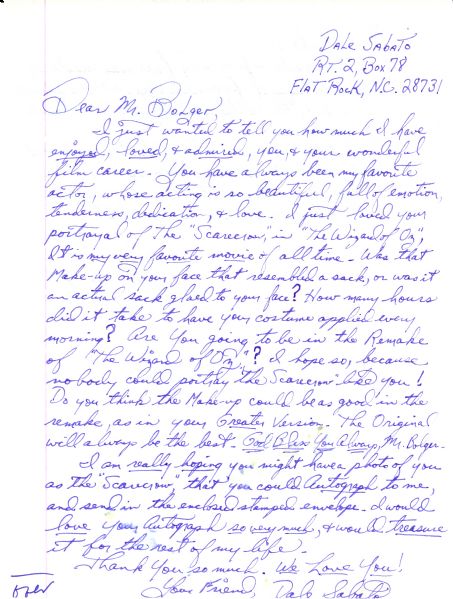 Dale Sabato
Rt. 2, Box 78
Flat Rock, N.C. 28731
Dear Mr. Bolger,
I just wanted to tell you how much I have
enjoyed, loved, & admired, you, & your wonderful
film career. You have always been my favorite
actor, whose acting is so beautiful, full of emotion,
tenderness, dedication, & love. I just loved your
portrayal of The "Scarecrow", in "The Wizard of Oz",
It is my very favorite movie of all time. Was that
Make-up on your face that resembled a sack, or was it
an actual sack glued to your face? How many hours
did it take to have your costume applied every
morning? Are you going to be in the Remake
of "The Wizard of Oz"? I hope so, because
nobody could portray the "Scarecrow" like you!
Do you think the Make-up could be as good in the
remake, as in your Greater Version. The Original
will always be the best. God Bless You Always, Mr. Bolger.
I am really hoping you might have a photo of you
as the "Scarecrow", that you could Autograph to me,
and send in the enclosed stamped envelope. I would
love your Autograph so very much, & would treasure
it for the rest of my life.
Thank you so much. We Love You!
Your Friend, Dale Sabato
over